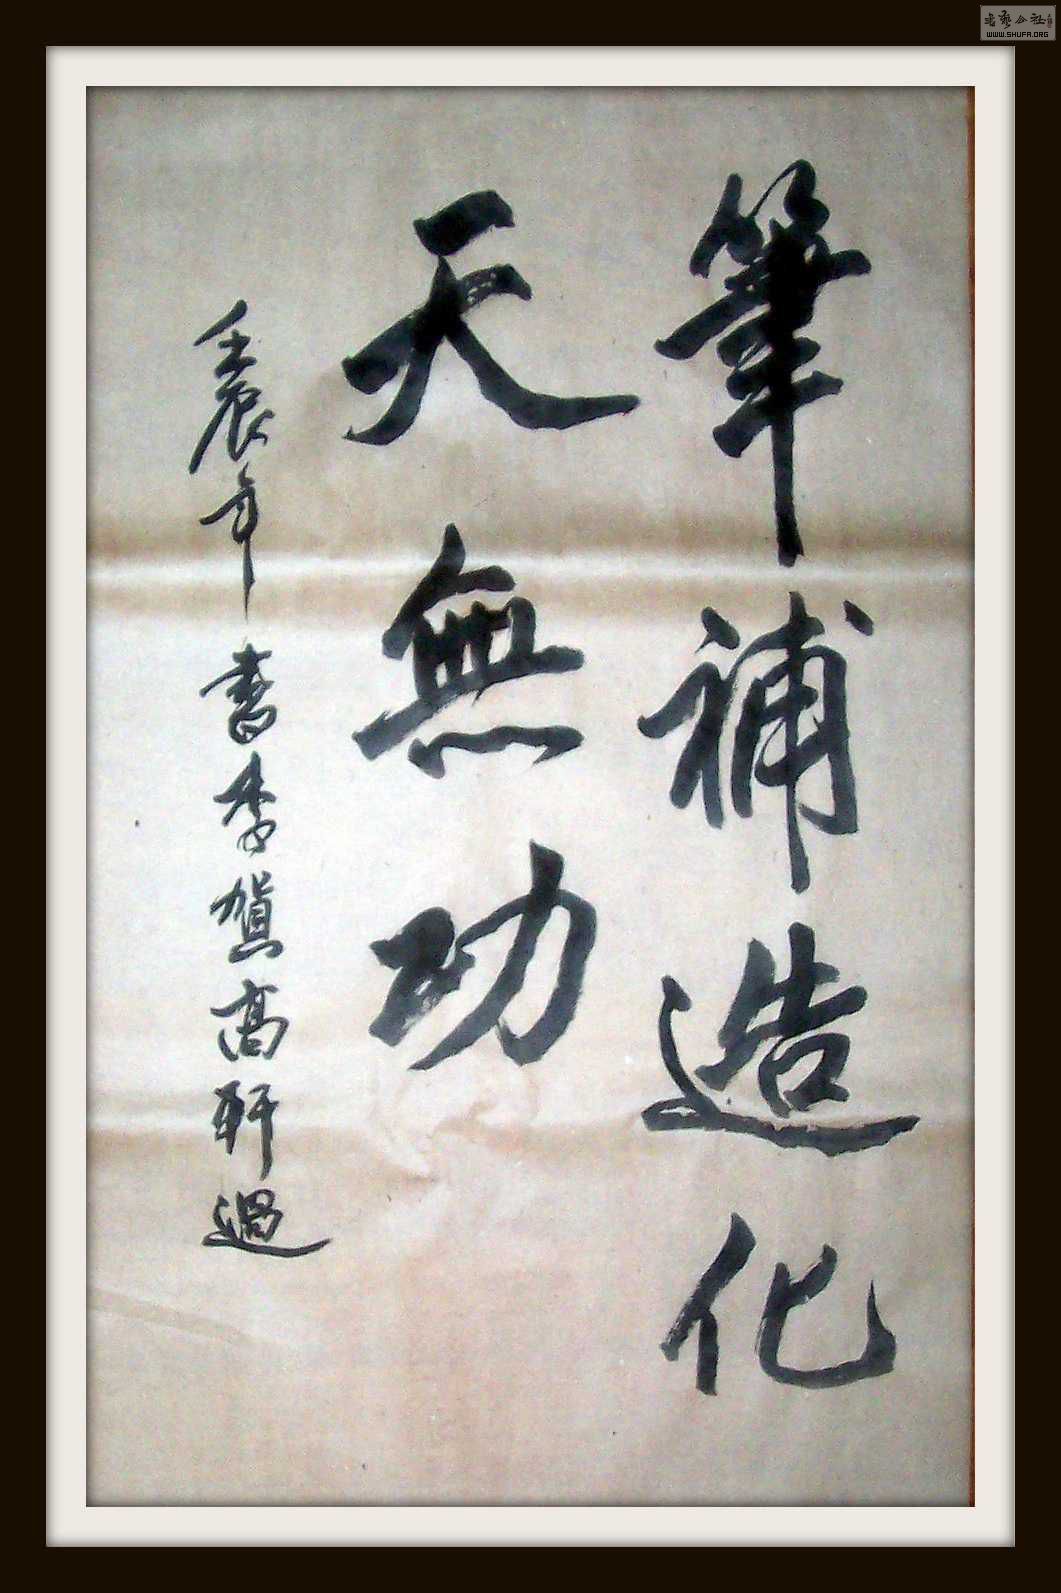 筆補造化
天無功
壬辰年書李賀高軒過
书艺公社
WWW.SHUFA.ORG